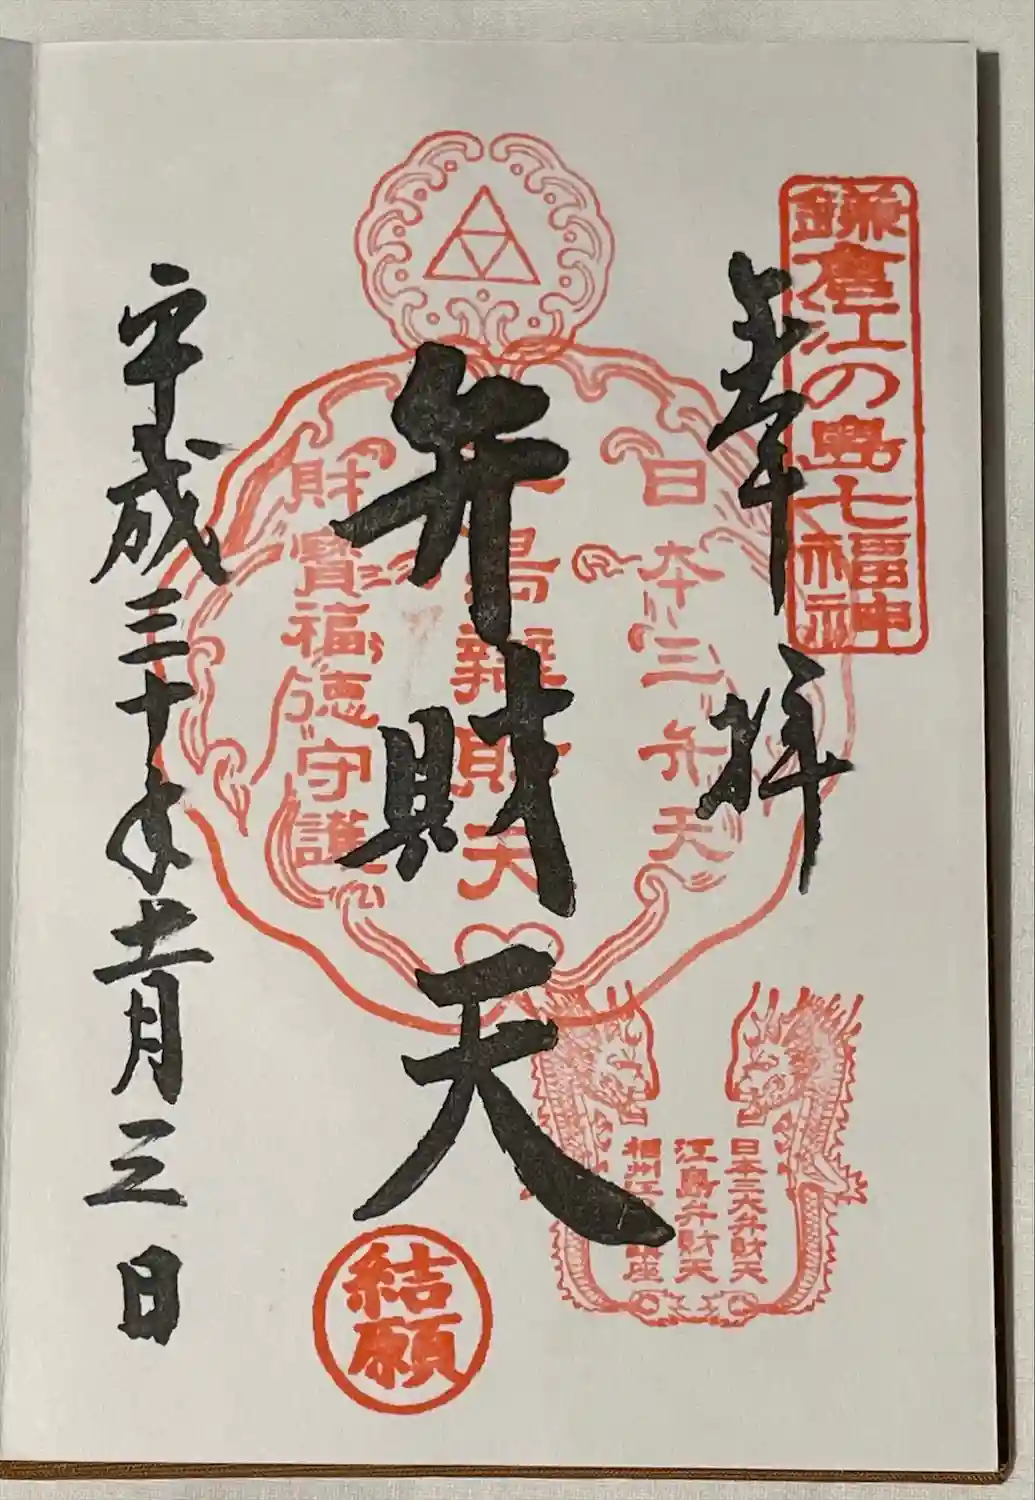 鎌倉江の島七福神
奉拝
日本三弁天
島辨財天
財寶福徳守護
弁財天
日本三大弁財天
江島弁財天
相州江
座
結願
平成三十年十一月三日